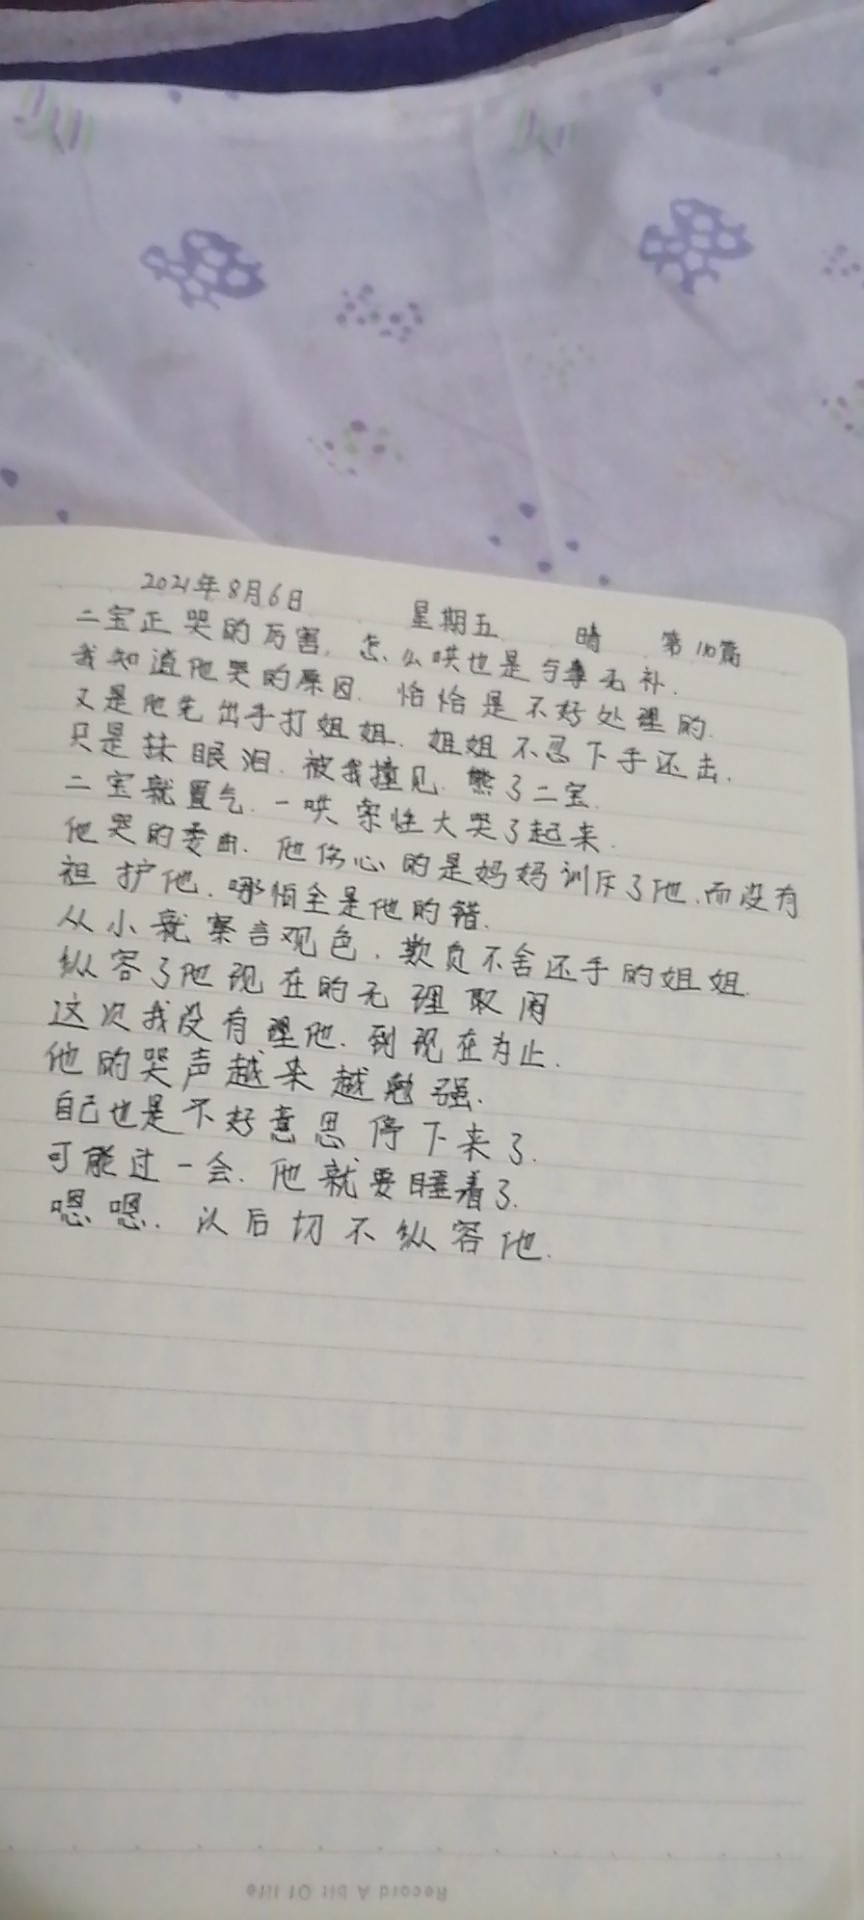 2021年8月6日 星期五 晴 第110篇
二宝正哭的厉害，怎么哄也是与事无补.
我知道他哭的原因. 恰恰是不好处理的.
又是他先出手打姐姐. 姐姐不忍下手还击.
只是抹眼泪. 被我撞见. 熊了二宝.
二宝就置气. 一哄索性大哭了起来.
他哭的委曲. 他伤心的是妈妈训斥了他.而没有
袒护他. 哪怕全是他的错.
从小就察言观色. 欺负不舍还手的姐姐.
纵容了他现在的无理取闹
这次我没有理他. 到现在为止.
他的哭声越来越勉强.
自己也是不好意思停下来了.
可能过一会. 他就要睡着了.
嗯嗯. 以后切不纵容他.
Record A bit Of life